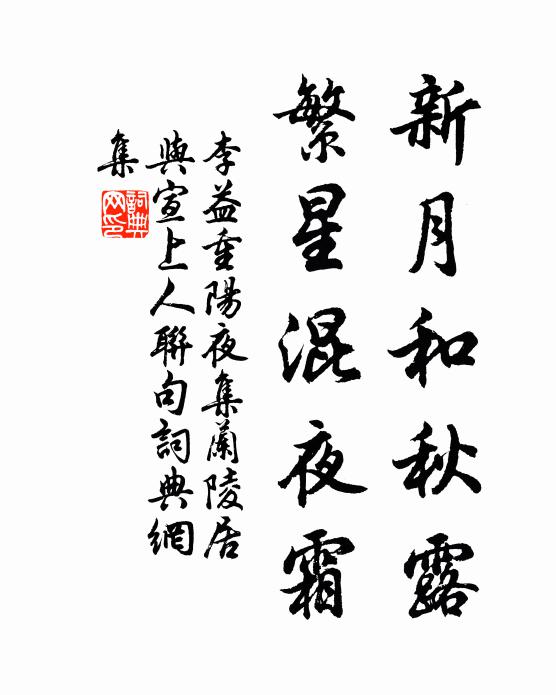 新月和秋露
繁星混夜霜
李益重陽夜集蘭陵居
與宣上人聯句詞典網
集
詞典
网印